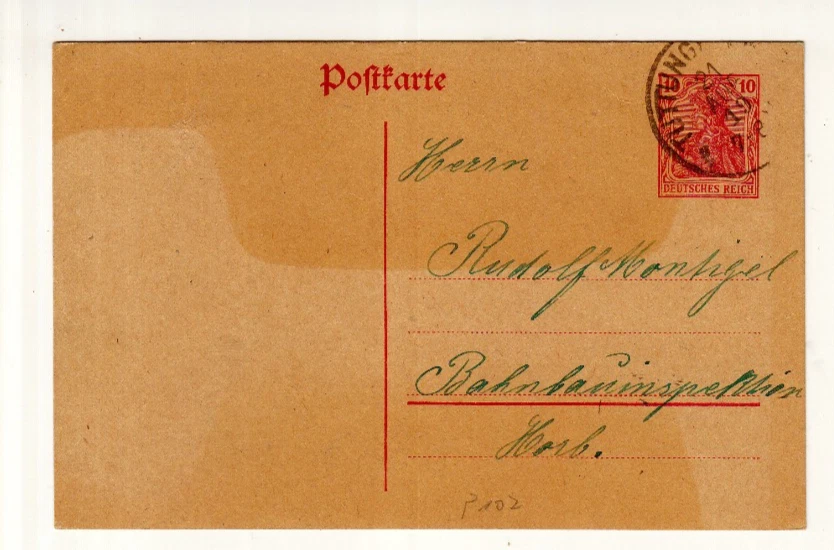 Postkarte
TUTTLINGEN
10 10
DEUTSCHES REICH
Herrn
Rudolf Montigel
Bahnbauinspektion
Horb.
P 102